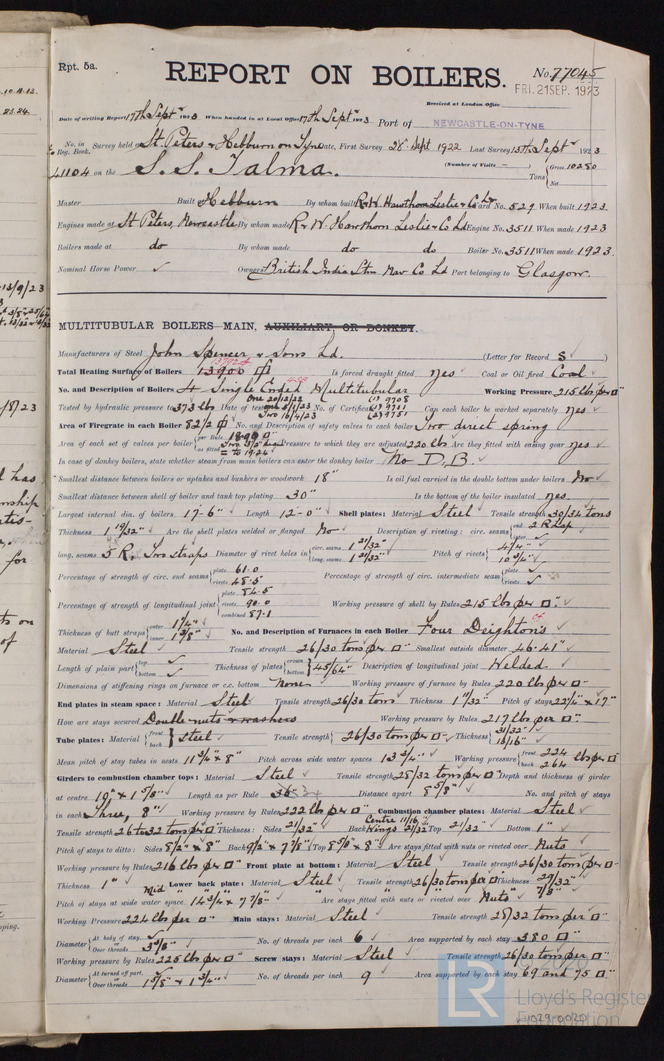 Rpt. 5a.
REPORT ON BOILERS.
No. 77045
Received at London Office FRI. 21 SEP. 1923
Date of writing Report 17th Sept 1923 When handed in at Local Office 17th Sept 1923 Port of NEWCASTLE-ON-TYNE
No. in Reg. Book. Survey held at St. Peters & Hebburn on Tyne Date, First Survey 28th Sept 1922 Last Survey 13th Sept 1923
41104 on the S.S. Talma. (Number of Visits — ) Tons Gross 10250 Net
Master Built Hebburn By whom built R & W. Hawthorn Leslie & Co Ld Yard No. 529 When built 1923
Engines made at St Peters, Newcastle By whom made R & W. Hawthorn Leslie & Co Ld Engine No. 3511 When made 1923
Boilers made at do By whom made do do Boiler No. 3511 When made 1923.
Nominal Horse Power Owners British India Stm Nav Co Ld Port belonging to Glasgow.
MULTITUBULAR BOILERS—MAIN, AUXILIARY OR DONKEY.
Manufacturers of Steel John Spencer & Sons Ld. (Letter for Record S )
Total Heating Surface of Boilers 13900 Is forced draught fitted yes Coal or Oil fired Coal
No. and Description of Boilers 4 Single Ended Multitubular Working Pressure 215 lbs per □"
Tested by hydraulic pressure to 373 lbs Date of test One 20/12/22 One 5/1/23 Two 16/4/23 No. of Certificate (1) 9708 (1) 9711 (2) 9751 Can each boiler be worked separately yes
Area of Firegrate in each Boiler 82/2 No. and Description of safety valves to each boiler Two direct spring
Area of each set of valves per boiler per Rule as fitted Pressure to which they are adjusted 220 lbs Are they fitted with easing gear yes
In case of donkey boilers, state whether steam from main boilers can enter the donkey boiler No D.B.
Smallest distance between boilers or uptakes and bunkers or woodwork 18" Is oil fuel carried in the double bottom under boilers No
Smallest distance between shell of boiler and tank top plating 30" Is the bottom of the boiler insulated yes
Largest internal dia. of boilers 17-6" Length 12-0" Shell plates: Material Steel Tensile strength 30/34 tons
Thickness 1 19/32" Are the shell plates welded or flanged No Description of riveting: circ. seams end 2 R Lap inter.
long. seams 5 R. Two straps Diameter of rivet holes in circ. seams 1 21/32" long. seams 1 21/32" Pitch of rivets 4/4" 10 3/4"
Percentage of strength of circ. end seams plate 61.0 rivets 48.5 Percentage of strength of circ. intermediate seam plate rivets
Percentage of strength of longitudinal joint plate 84.5 rivets 90.0 combined 87.1 Working pressure of shell by Rules 215 lbs per □"
Thickness of butt straps outer 1 1/4" inner 1 3/8" No. and Description of Furnaces in each Boiler Four Deightons
Material Steel Tensile strength 26/30 tons per □" Smallest outside diameter 46.41"
Length of plain part top bottom Thickness of plates crown bottom 45/64" Description of longitudinal joint Welded
Dimensions of stiffening rings on furnace or c.c. bottom None Working pressure of furnace by Rules 220 lbs per □"
End plates in steam space: Material Steel Tensile strength 26/30 tons Thickness 1 1/32" Pitch of stays 22 1/4" x 17"
How are stays secured Double nuts & washers Working pressure by Rules 217 lbs per □"
Tube plates: Material front back Steel Tensile strength 26/30 tons per □" Thickness 31/32" 13/16"
Mean pitch of stay tubes in nests 11 3/4" x 8" Pitch across wide water spaces 13 3/4" Working pressure front 224 back 264 lbs per □"
Girders to combustion chamber tops: Material Steel Tensile strength 28/32 tons per □" Depth and thickness of girder
at centre 10" x 1 5/8" Length as per Rule Distance apart 8 5/8" No. and pitch of stays
in each Three, 8" Working pressure by Rules 222 lbs per □" Combustion chamber plates: Material Steel
Tensile strength 26 to 32 tons per □" Thickness: Sides 21/32" Back Centre 11/16" Wings 21/32 Top 21/32" Bottom 1"
Pitch of stays to ditto: Sides 8 1/2" x 8" Back 9 1/2" x 7 7/8" Top 8 5/8" x 8" Are stays fitted with nuts or riveted over Nuts
Working pressure by Rules 216 lbs per □" Front plate at bottom: Material Steel Tensile strength 26/30 tons per □"
Thickness 1" Lower back plate: Material Steel Tensile strength 26/30 tons per □" Thickness 29/32"
Pitch of stays at wide water space Mid 14 3/4 x 7 7/8" Are stays fitted with nuts or riveted over Nuts 7/8"
Working Pressure 224 lbs per □" Main stays: Material Steel Tensile strength 28/32 tons per □"
Diameter At body of stay, or Over threads 3 3/8" No. of threads per inch 6 Area supported by each stay 380 □"
Working pressure by Rules 225 lbs per □" Screw stays: Material Steel Tensile strength 26/30 tons per □"
Diameter At turned off part, or Over threads 1 5/8" x 1 3/4" No. of threads per inch 9 Area supported by each stay 69 and 75 □"
LR
Lloyd's Register
Foundation